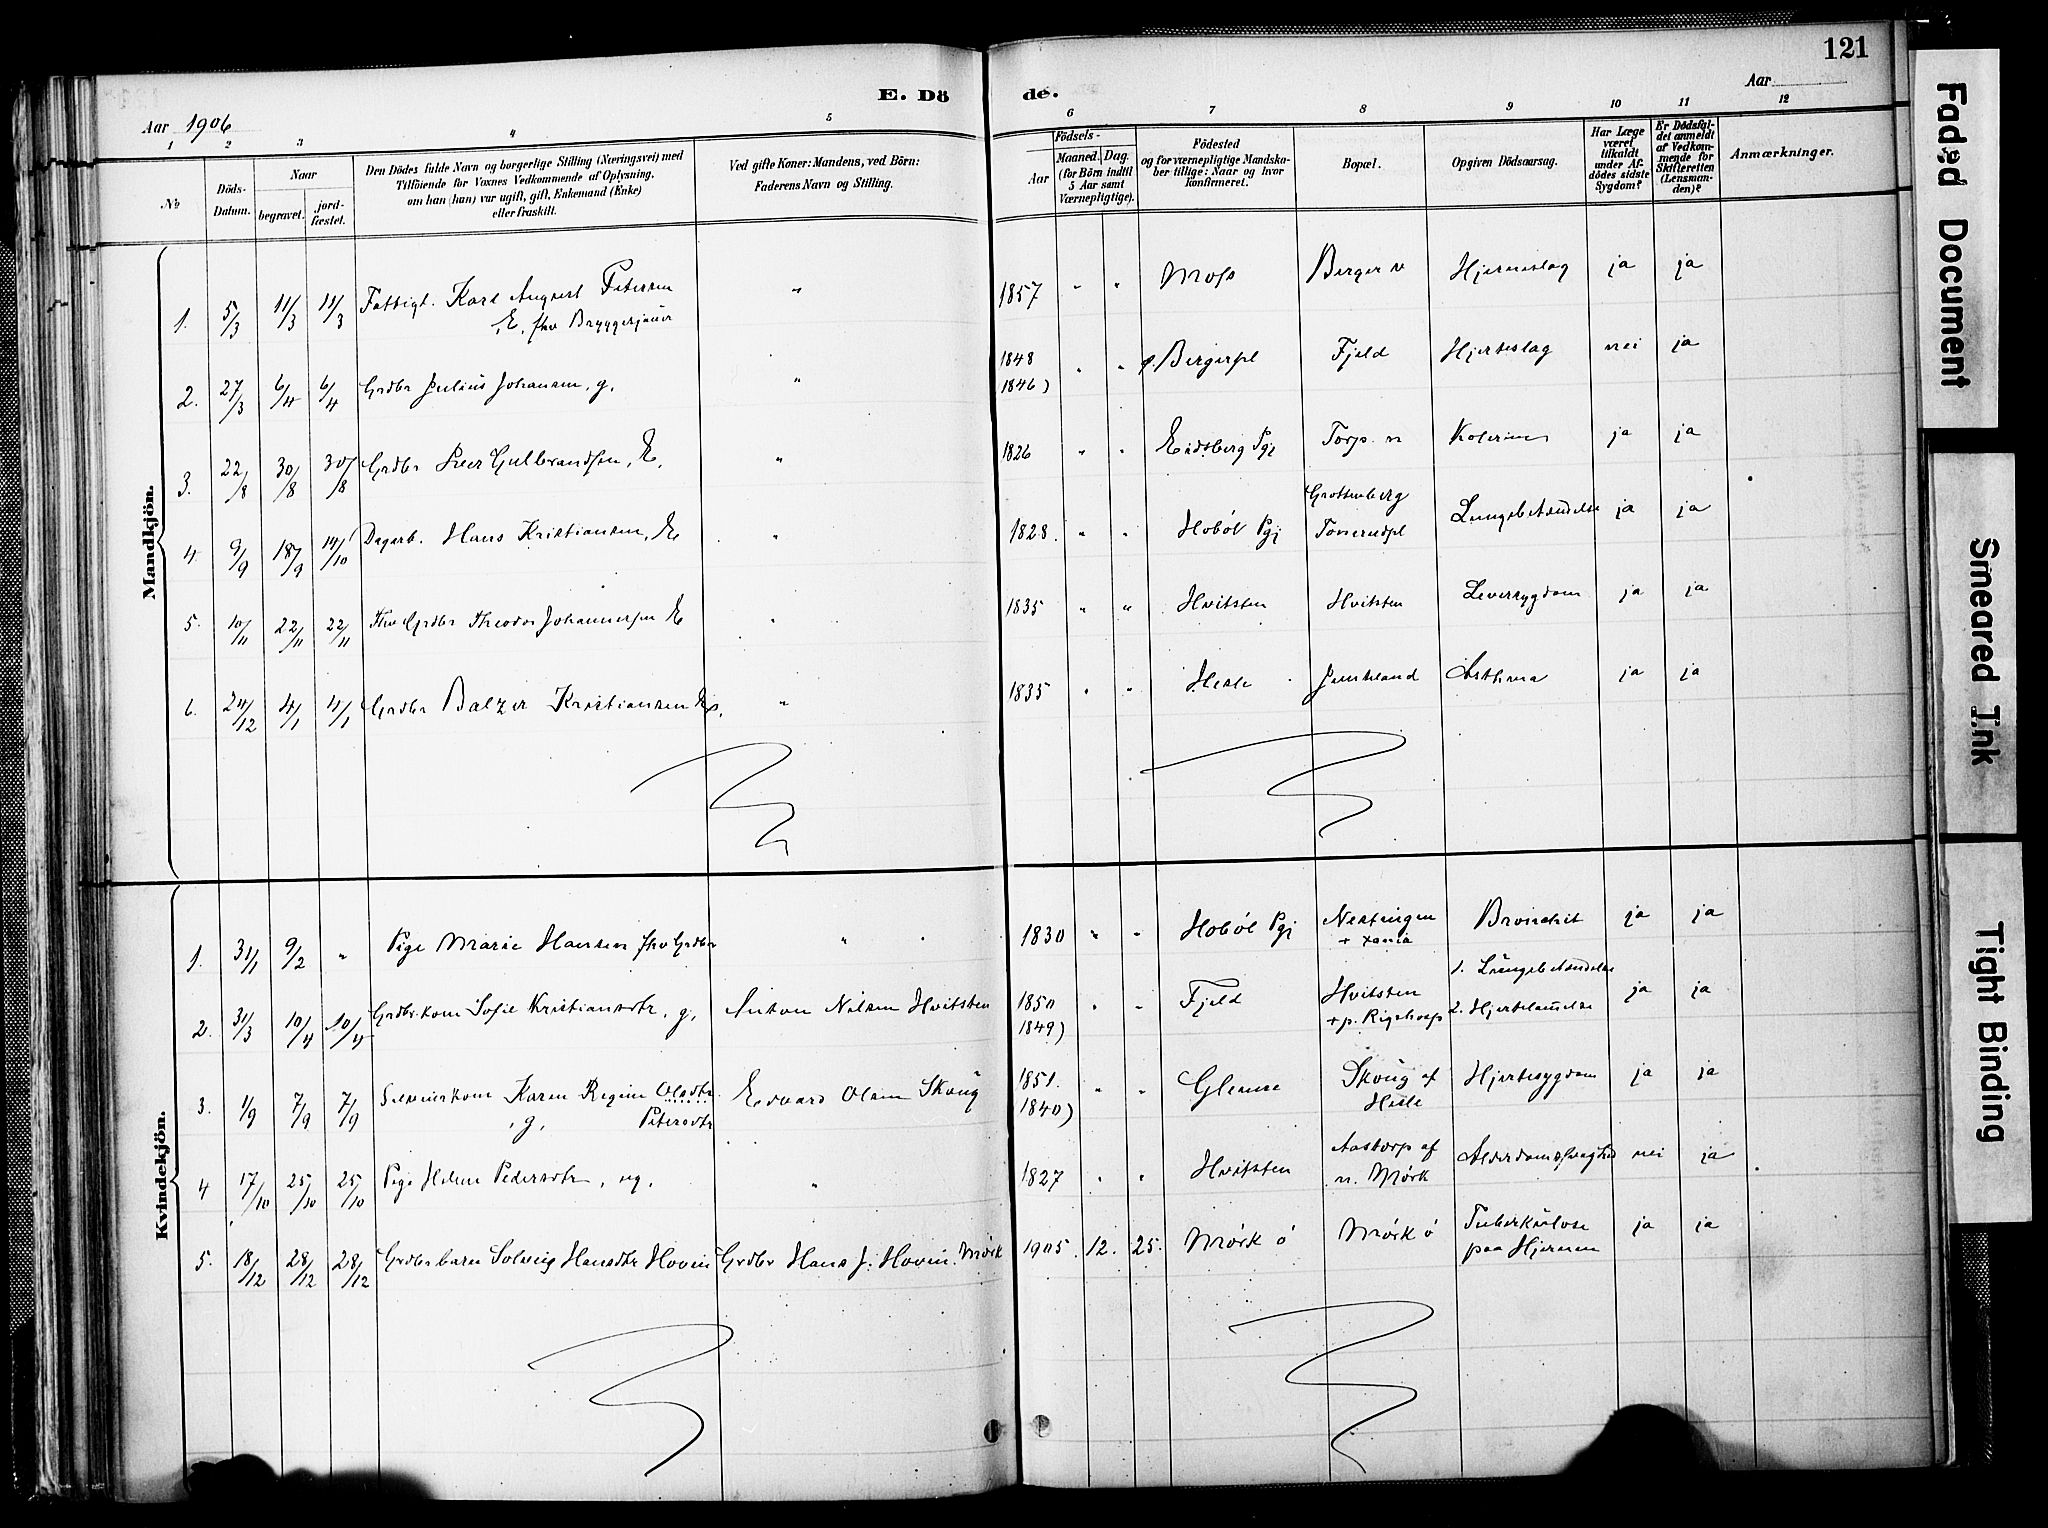 121
E. Dö de.
Aar 1906
Aar
1 2 3 4 5 6 7 8 9 10 11 12
No
Döds-Datum.
Naar
begravet.
jord-fæstet.
Den Dödes fulde Navn og borgerlige Stilling (Næringsvei) med
Tilföiende for Voxnes Vedkommende af Oplysning.
om han (hun) var ugift, gift, Enkemand (Enke)
eller fraskilt.
Ved gifte Koner: Mandens, ved Börn:
Faderens Navn og Stilling.
Födsels-
Aar
Maaned. Dag.
(for Börn indtil
5 Aar samt
Værnepligtige).
Födested
og for værnepligtige Mandska-
ber tillige: Naar og hvor
konfirmeret.
Bopæl.
Opgiven Dödsaarsag.
Har Læge
været
tilkaldt
under Af-
dödes sidste
Sygdom?
Er Dödsfal-
det anmeldt
af Vedkom-
mende for
Skifteretten
(Lensman-
den)?
Anmærkninger.
Mandkjön.
1. 5/3 11/3 11/3 Fattigl. Karl August Petersen " 1857 " " Moss Berger Hjerneslag ja ja
E, fhv Bryggerjauer
2. 27/3 6/4 6/4 Grdbr Julius Johansen, g, " 1848 " " Bergerpl Fjeld Hjerteslag nei ja
1846)
3. 22/8 30/8 30/8 Grdbr Peer Gulbrandsen, E, " 1826 " " Eidsberg Pgj Torp. n Kolerine ja ja
4. 9/9 18/9 14/10 Dagarb. Hans Kristiansen, E " 1828. " " Hobøl Pgj Grottenberg
Tonerudpl Lungebetændelse ja ja
5. 10/11 22/11 22/11 Fhv Grdbr Theodor Johannessen E " 1835 " " Hvitsten Hvitsten Leversygdom ja ja
6. 24/12 4/1 4/1 Grdbr Balzer Kristiansen " 1835 " " Hesle Asthma ja ja
Kvindekjön.
1. 31/1 9/2 " Pige Marie Hansen fhv Grdbr " 1830 " " Hobøl Pgj Nestingen
+ xania Bronchit ja ja
2. 31/3 10/4 10/4 Grdbrkone Sofie Kristiansdtr, g, Anton Nilsen Hvitsten 1850 " " Fjeld Hvitsten 1. Lungebetændelse ja ja
1849) 2. Hjertelammelse
3. 1/9 7/9 7/9 Karen Regine Olsdtr Edvard Olsen Skoug 1851. " " Glemse Skoug af Hjertesygdom ja ja
, g, Petersdtr 1840) Hesle
4 17/10 25/10 25/10 Pige Helene Pedersdtr, ug, " 1827 " " Hvitsten Aastorp af Alderdomssvaghed nei ja
n. Mørk
5. 18/12 28/12 28/12 Grdbrbarn Solveig Hansdtr Hovin Grdbr Hans J. Hovin. Mørk 1905. 12. 25. Mørk ö Mørk ö Tuberkulose ja ja
paa Hjernen
Faded Document
Smeared Ink
Tight Binding